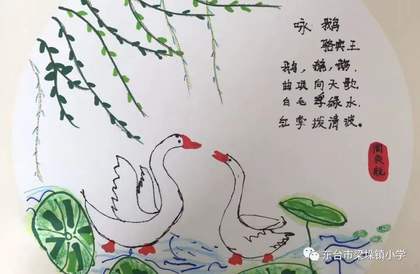 咏 鹅
骆宾王
鹅，鹅，鹅，
曲项向天歌
白毛浮绿水，
红掌拨清波。
东台市梁垛镇小学